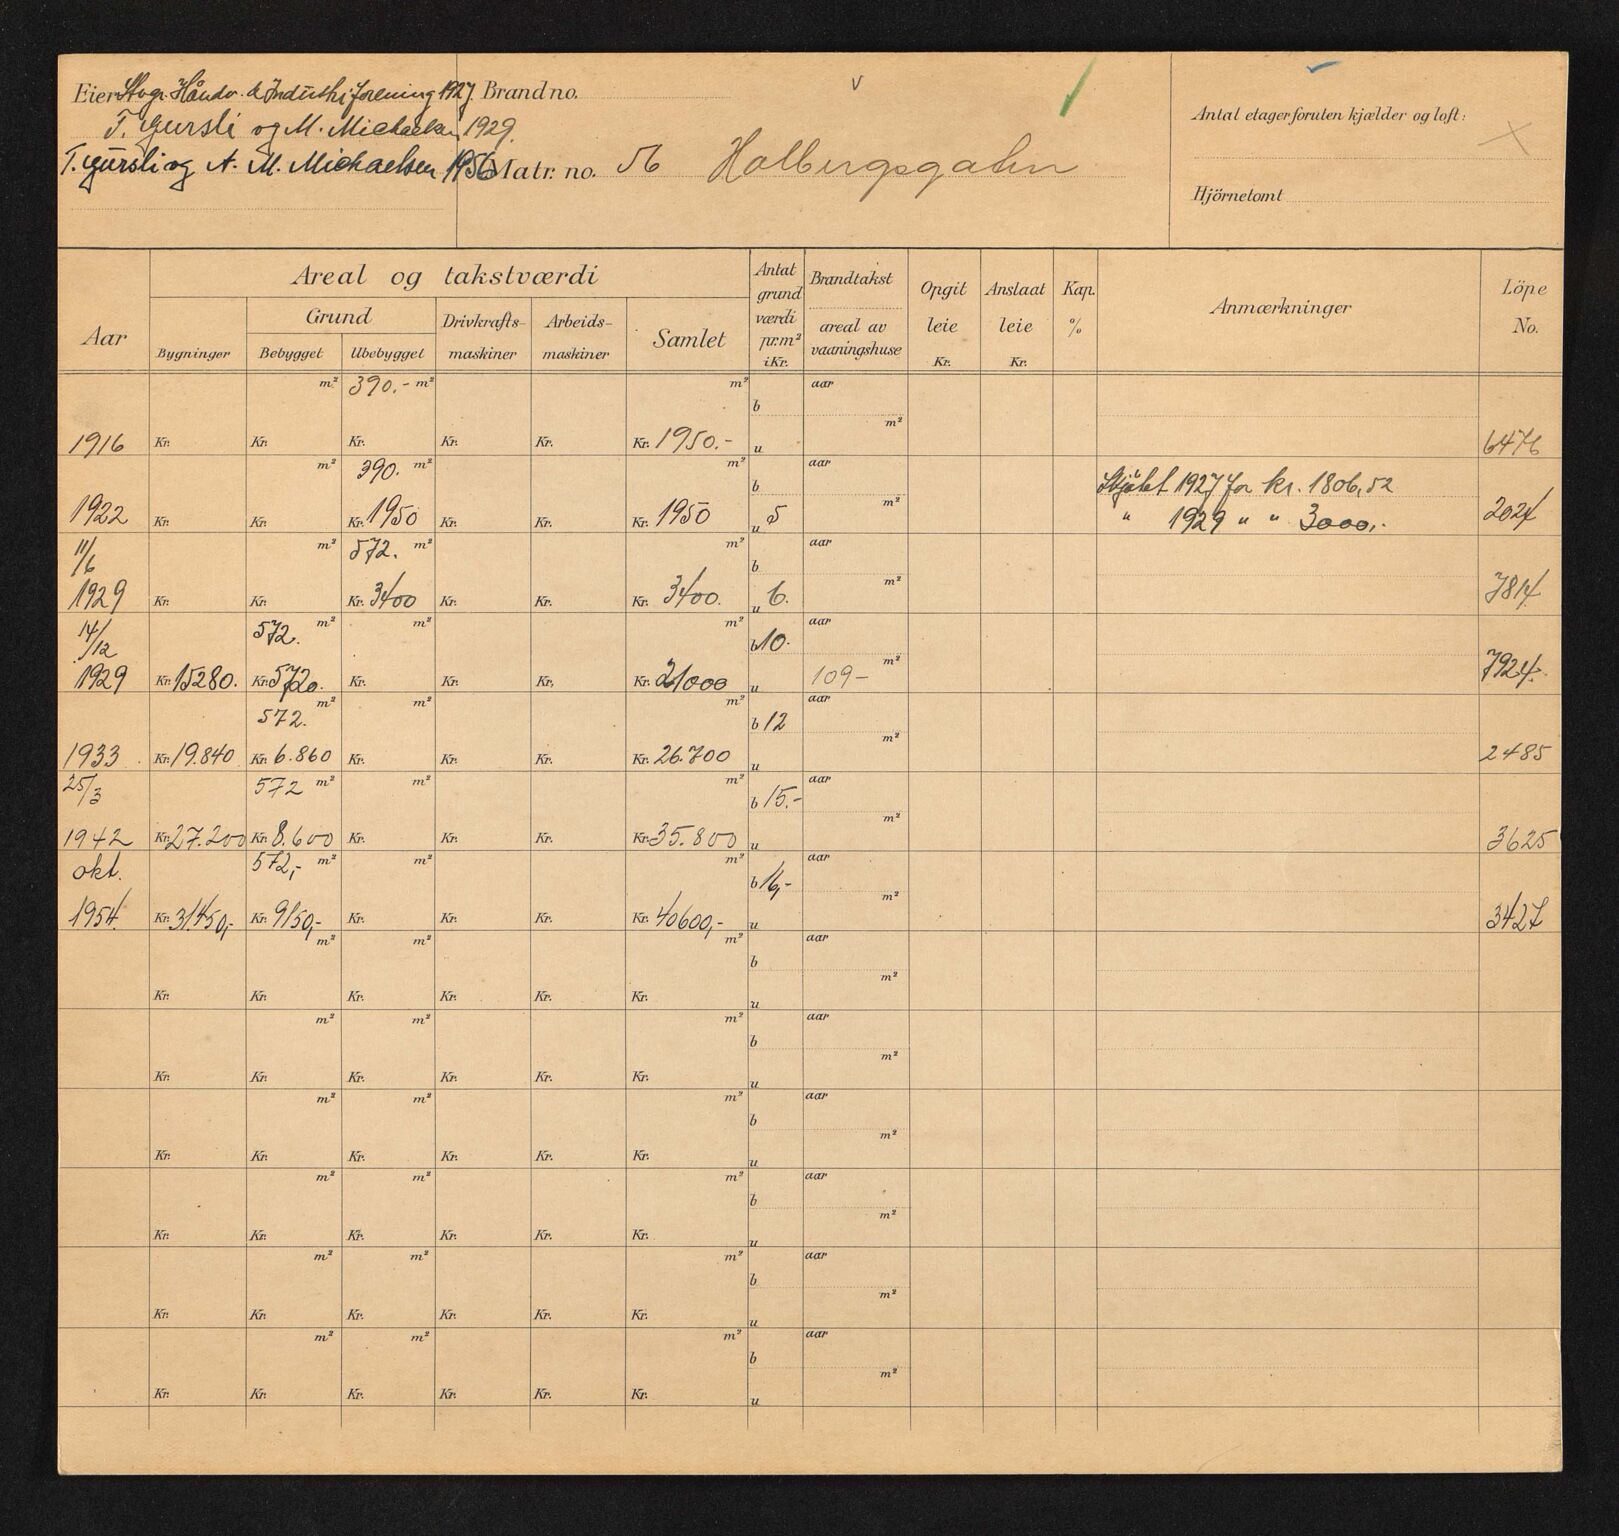 Eier Stvgr. Håndv. & Industriforening 1927. Brand no.
T. Gursli og M. Michaelsen 1929.
T. Gursli og A. M. Michaelsen 1956 Matr. no. 56 Holbergsgaten
Antal etager foruten kjælder og loft:
Hjörnetomt
Aar
Areal og takstværdi
Bygninger
Grund
Bebygget
Ubebygget
Drivkrafts-
maskiner
Arbeids-
maskiner
Samlet
Antat
grund
værdi
pr. m²
i Kr.
Brandtakst
areal av
vaaningshuse
Opgit
leie
Kr.
Anslaat
leie
Kr.
Kap.
%
Anmærkninger
Löpe
No.
m² 390.- m² m² b aar m²
1916 Kr. Kr. Kr. Kr. Kr. Kr. 1950.- u 6476
m² 390. m² m² b aar m² Skjötet 1927 for kr. 1806,52
1922 Kr. Kr. Kr. 1950 Kr. Kr. Kr. 1950 u 5 " 1929 " " 3000,- 2024
11/6 m² 572. m² m² b aar m²
1929 Kr. Kr. Kr. 3400 Kr. Kr. Kr. 3400. u 6. 7814
14/12 572. m² m² m² b 10. aar m²
1929 Kr. 15280. Kr. 5720. Kr. Kr. Kr. Kr. 21000 u 109- 7924.
572. m² m² m² b 12 aar m²
1933 Kr. 19.840 Kr. 6.860 Kr. Kr. Kr. Kr. 26.700 u 2485
25/3 572 m² m² m² b 15.- aar m²
1942 Kr. 27.200 Kr. 8.600 Kr. Kr. Kr. Kr. 35.800 u 3625
okt. 572,- m² m² m² b 16,- aar m²
1954. Kr. 31450,- Kr. 9150,- Kr. Kr. Kr. Kr. 40600,- u 3427
m² m² m² b aar m²
Kr. Kr. Kr. Kr. Kr. Kr. u
m² m² m² b aar m²
Kr. Kr. Kr. Kr. Kr. Kr. u
m² m² m² b aar m²
Kr. Kr. Kr. Kr. Kr. Kr. u
m² m² m² b aar m²
Kr. Kr. Kr. Kr. Kr. Kr. u
m² m² m² b aar m²
Kr. Kr. Kr. Kr. Kr. Kr. u
m² m² m² b aar m²
Kr. Kr. Kr. Kr. Kr. Kr. u